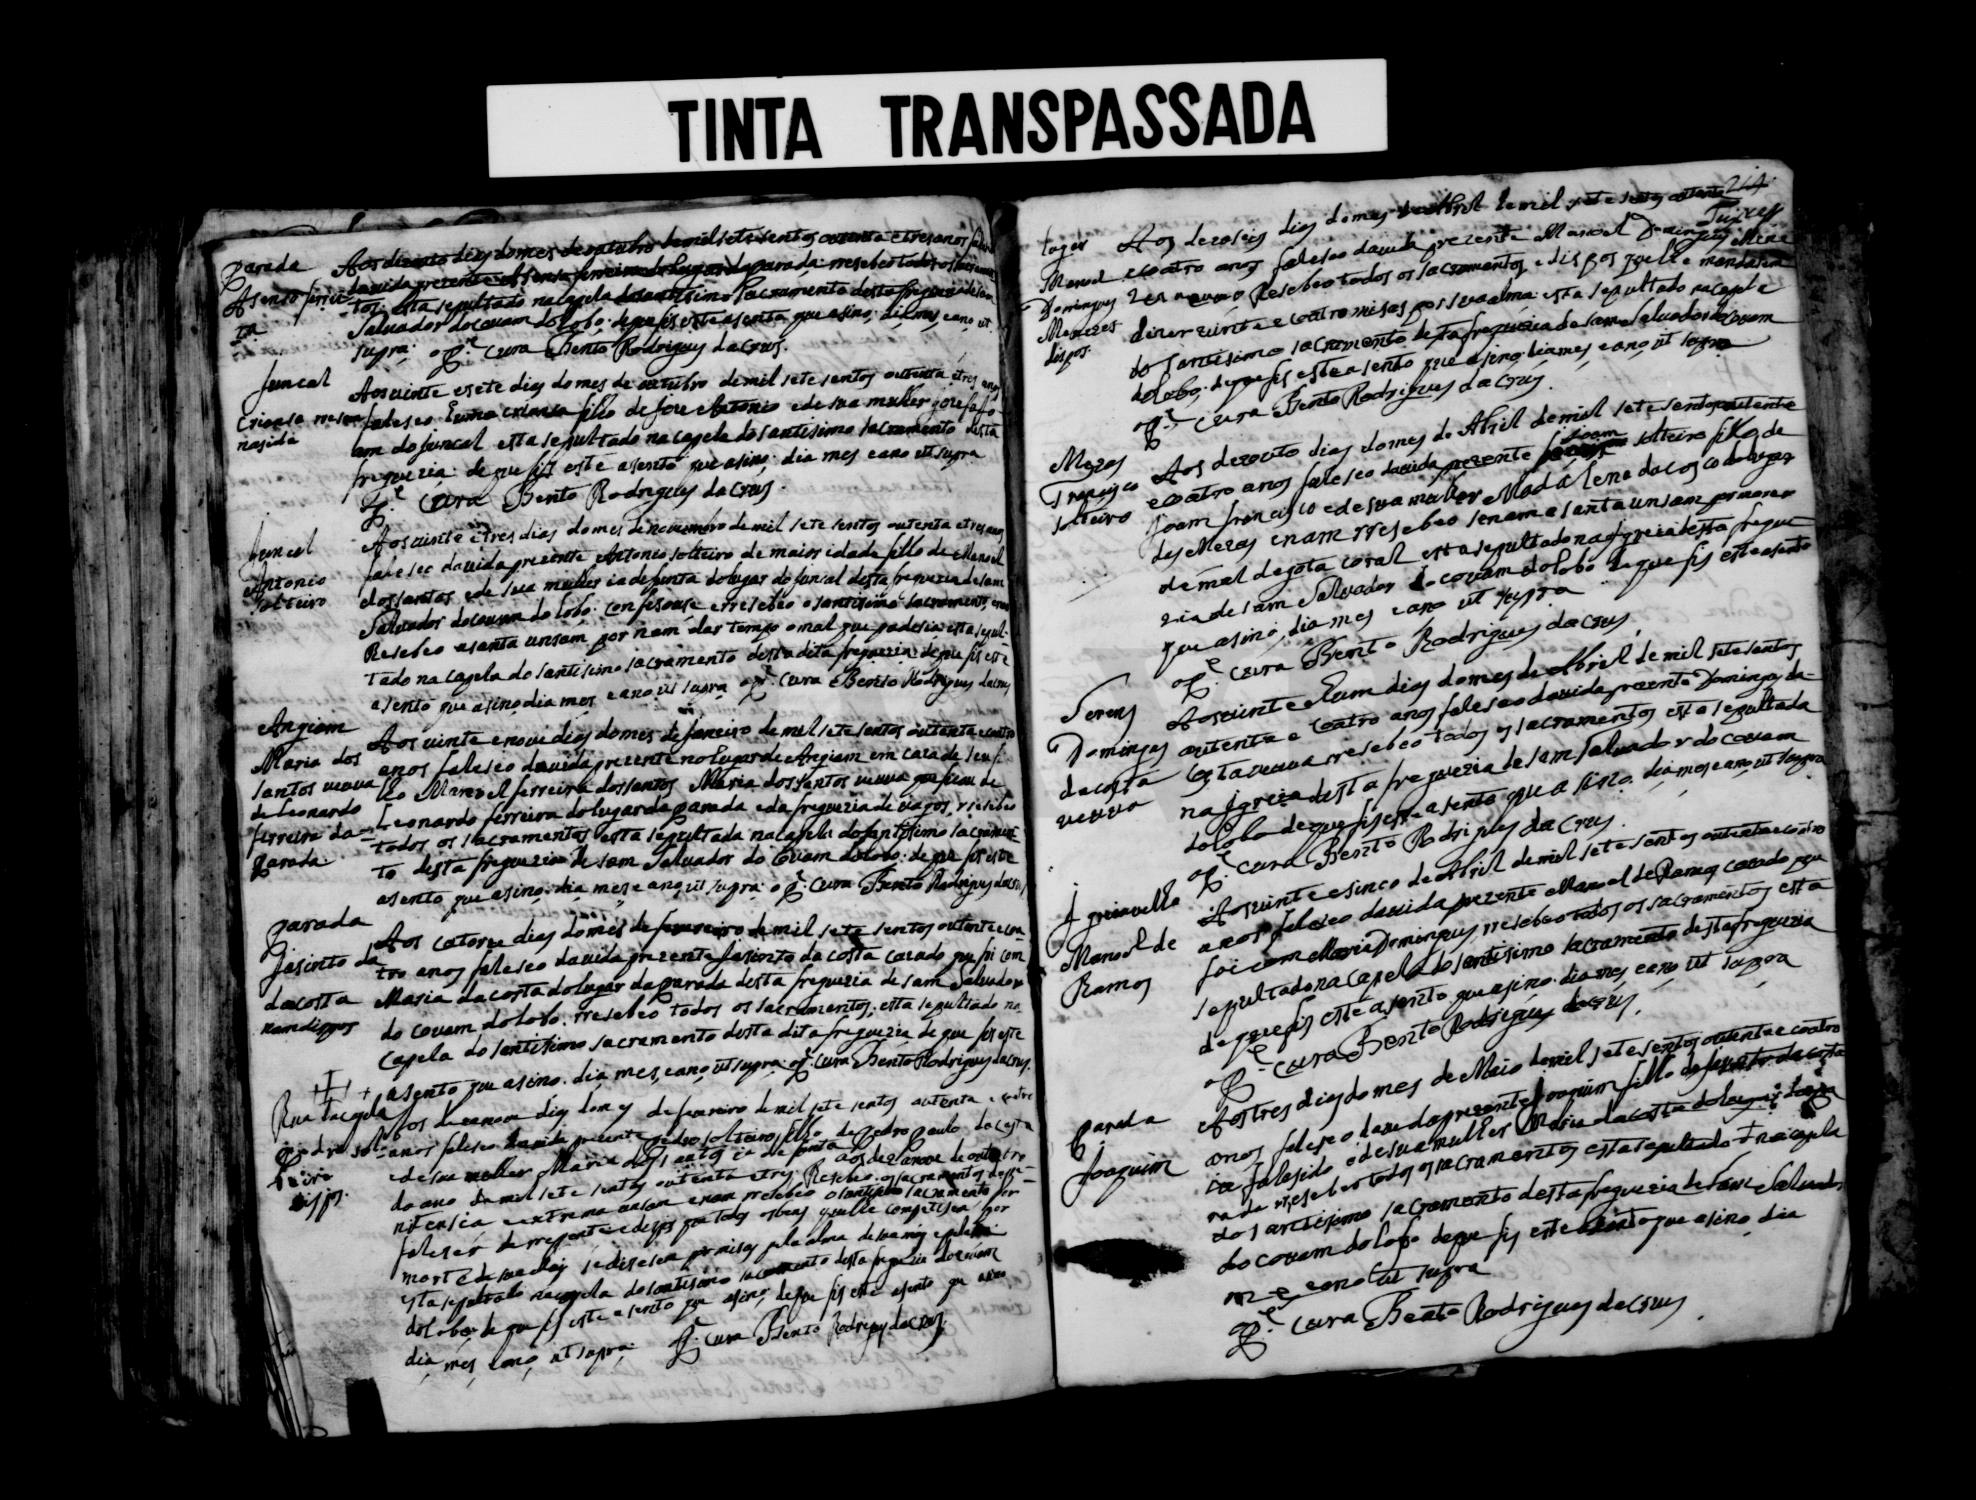 TINTA TRANSPASSADA
parada
Asenso ferrei
ra
Aos dezouto dias do mes de outubro de mil sete sentos outenta e tres anos faleseo
da vida prezente Asenso ferreira do lugar da parada rresebeo todos os sacramen
tos: esta sepultado na capela do santisimo sacramento desta freguezia de sam
Salvador do couam do lobo: de que fis este asento que asino; dia, mes, e ano ut
supra: o Pe cura Bento Rodrigues da Crus.
funcal
Criansa resem
nasida
Aos uinte e sete dias do mes de outubro de mil sete sentos outenta e tres anos
faleseo huma criansa filho de Joze Antonio e de sua mulher
am do funcal esta sepultado na capela do santisimo sacramento desta
freguezia: de que fis este asento que asino; dia mes e ano ut supra
Pe Cura Bento Rodrigues da Crus.
funcal
Antonio
solteiro
Aos uinte e tres dias do mes de novembro de mil sete sentos outenta e tres anos
faleseo da uida prezente Antonio solteiro de maior idade fillo de Manoel
dos santos e de sua mulher ia defunta do lugar do funcal desta freguezia de sam
Salvador do couam do lobo: confesouse e rresebeo o santisimo sacramento, e nam
Resebeo a santa unsam por nam dar tempo o mal que padesia: esta sepul
tado na capela do santisimo sacramento desta dita freguezia: de que fis este
asento que asino dia mes e ano ut supra o Pe Cura Bento Rodrigues da crus
Angiam
Maria dos
santos ueuua
de Leonardo
ferreira da
parada
Aos uinte e noue dias do mes de Janeiro de mil sete sentos outenta e coatro
anos faleseo da uida prezente no lugar de Angiam em caza de seu fi
lho Manoel ferreira dos santos Maria dos santos ueuua que ficou de
Leonardo ferreira do lugar da parada e da freguezia de uagos, rresebeo
todos os sacramentos esta sepultada na capela do santisimo sacramen
to desta freguezia de sam Salvador do Couam do lobo: de que fis este
asento que asino. dia mes e ano ut supra: o Pe Cura Bento Rodrigues da crus
parada
Jasinto da
da costa
nam dispos
Aos catorze dias do mes de feuereiro de mil sete sentos outenta e coa
tro anos faleseo da uida prezente Jasinto da costa cazado que foi com
Maria da costa do lugar da parada desta freguezia de sam Salvador
do couam do lobo. rresebeo todos os sacramentos, esta sepultado na
capela do santisimo sacramento desta dita freguezia de que fis este
asento que asino. dia mes, e ano ut supra o Pe Cura Bento Rodrigues da Crus.
Rua da capela
pedro sol
teiro
dispos.
Aos dezanoue dias do mes de feuereiro de mil sete sentos outenta e coatro
anos faleseo da uida prezente pedro solteiro fillo de Pedro paulo da costa
e de sua mulher Maria dos santos ia defunta aos dezanoue de outubro
do ano de mil sete sentos outenta e tres Resebeo os sacramentos da pe
nitensia e extrema unsam e nam rresebeo o santisimo sacramento por
faleser de rrepente e dispos
morte de sua mai se disesem
esta sepultado na capela do santisimo sacramento desta freguezia do couam
do lobo: de que fis este asento que asino
dia, mes, e ano, ut supra: Pe Cura Bento Rodrigues da Crus.
214
Manoel
Domingues
Menezes
dispos.
Aos dezaseis dias do mes de Abril de mil sete sentos outenta
e coatro anos faleseo da uida prezente Manoel Domingues Mene
Resebeo todos os sacramentos, e dispos que lhe mandasem
dizer uinte e coatro misas por sua alma: esta sepultado na capela
do santisimo sacramento desta freguezia de sam Salvador do Couam
do lobo: de que fis este asento que asino. dia mes e ano ut supra
o Pe Cura Bento Rodrigues da Crus.
Mezas
Francisco
solteiro
Aos dezouto dias do mes de Abril de mil sete sentos outenta
e coatro anos faleseo da uida prezente Joam solteiro fillo de
Joam francisco e de sua mulher Madalena da costa do lugar
das Mezas e nam rresebeo senam a santa unsam por morer
de mal de gota coral esta sepultado na igreia desta fregue
zia de sam Salvador do couam do lobo de que fis este asento
que asino, dia mes e ano ut supra
o Pe cura Bento Rodrigues da Crus.
Domingas
da costa
ueuua
Aos uinte e hum dias do mes de Abril de mil sete sentos
outenta e coatro anos faleseo da uida prezente Domingas da
Costa ueuua rresebeo todos os sacramentos esta sepultada
na igreia desta freguezia de sam Salvador do couam
do lobo de que fis este asento que asino. dia mes e ano ut supra
o Pe cura Bento Rodrigues da Crus.
Igreiauella
Manoel de
Ramos
Aos uinte e sinco de Abril de mil sete sentos outenta e coatro
anos faleseo da uida prezente Manoel de Ramos cazado que
foi com Maria Domingues, rresebeo todos os sacramentos esta
sepultado na Capela do santisimo sacramento desta freguezia
de que fis este asento que asino. dia mes, e ano ut supra
o Pe cura Bento Rodrigues da crus.
Parada
Joaquim
Aos tres dias do mes de Maio de mil sete sentos outenta e coatro
anos faleseo da uida prezente Joaquim fillo de Jasinto da costa
ia falesido e de sua mulher Maria da costa do lugar da pa
rada rresebeo todos os sacramentos esta sepultado na capela
do santisimo sacramento desta freguezia de sam Salvador
do couam do lobo de que fis este asento que asino, dia
mes e ano ut supra
o Pe Cura Bento Rodrigues da Crus.